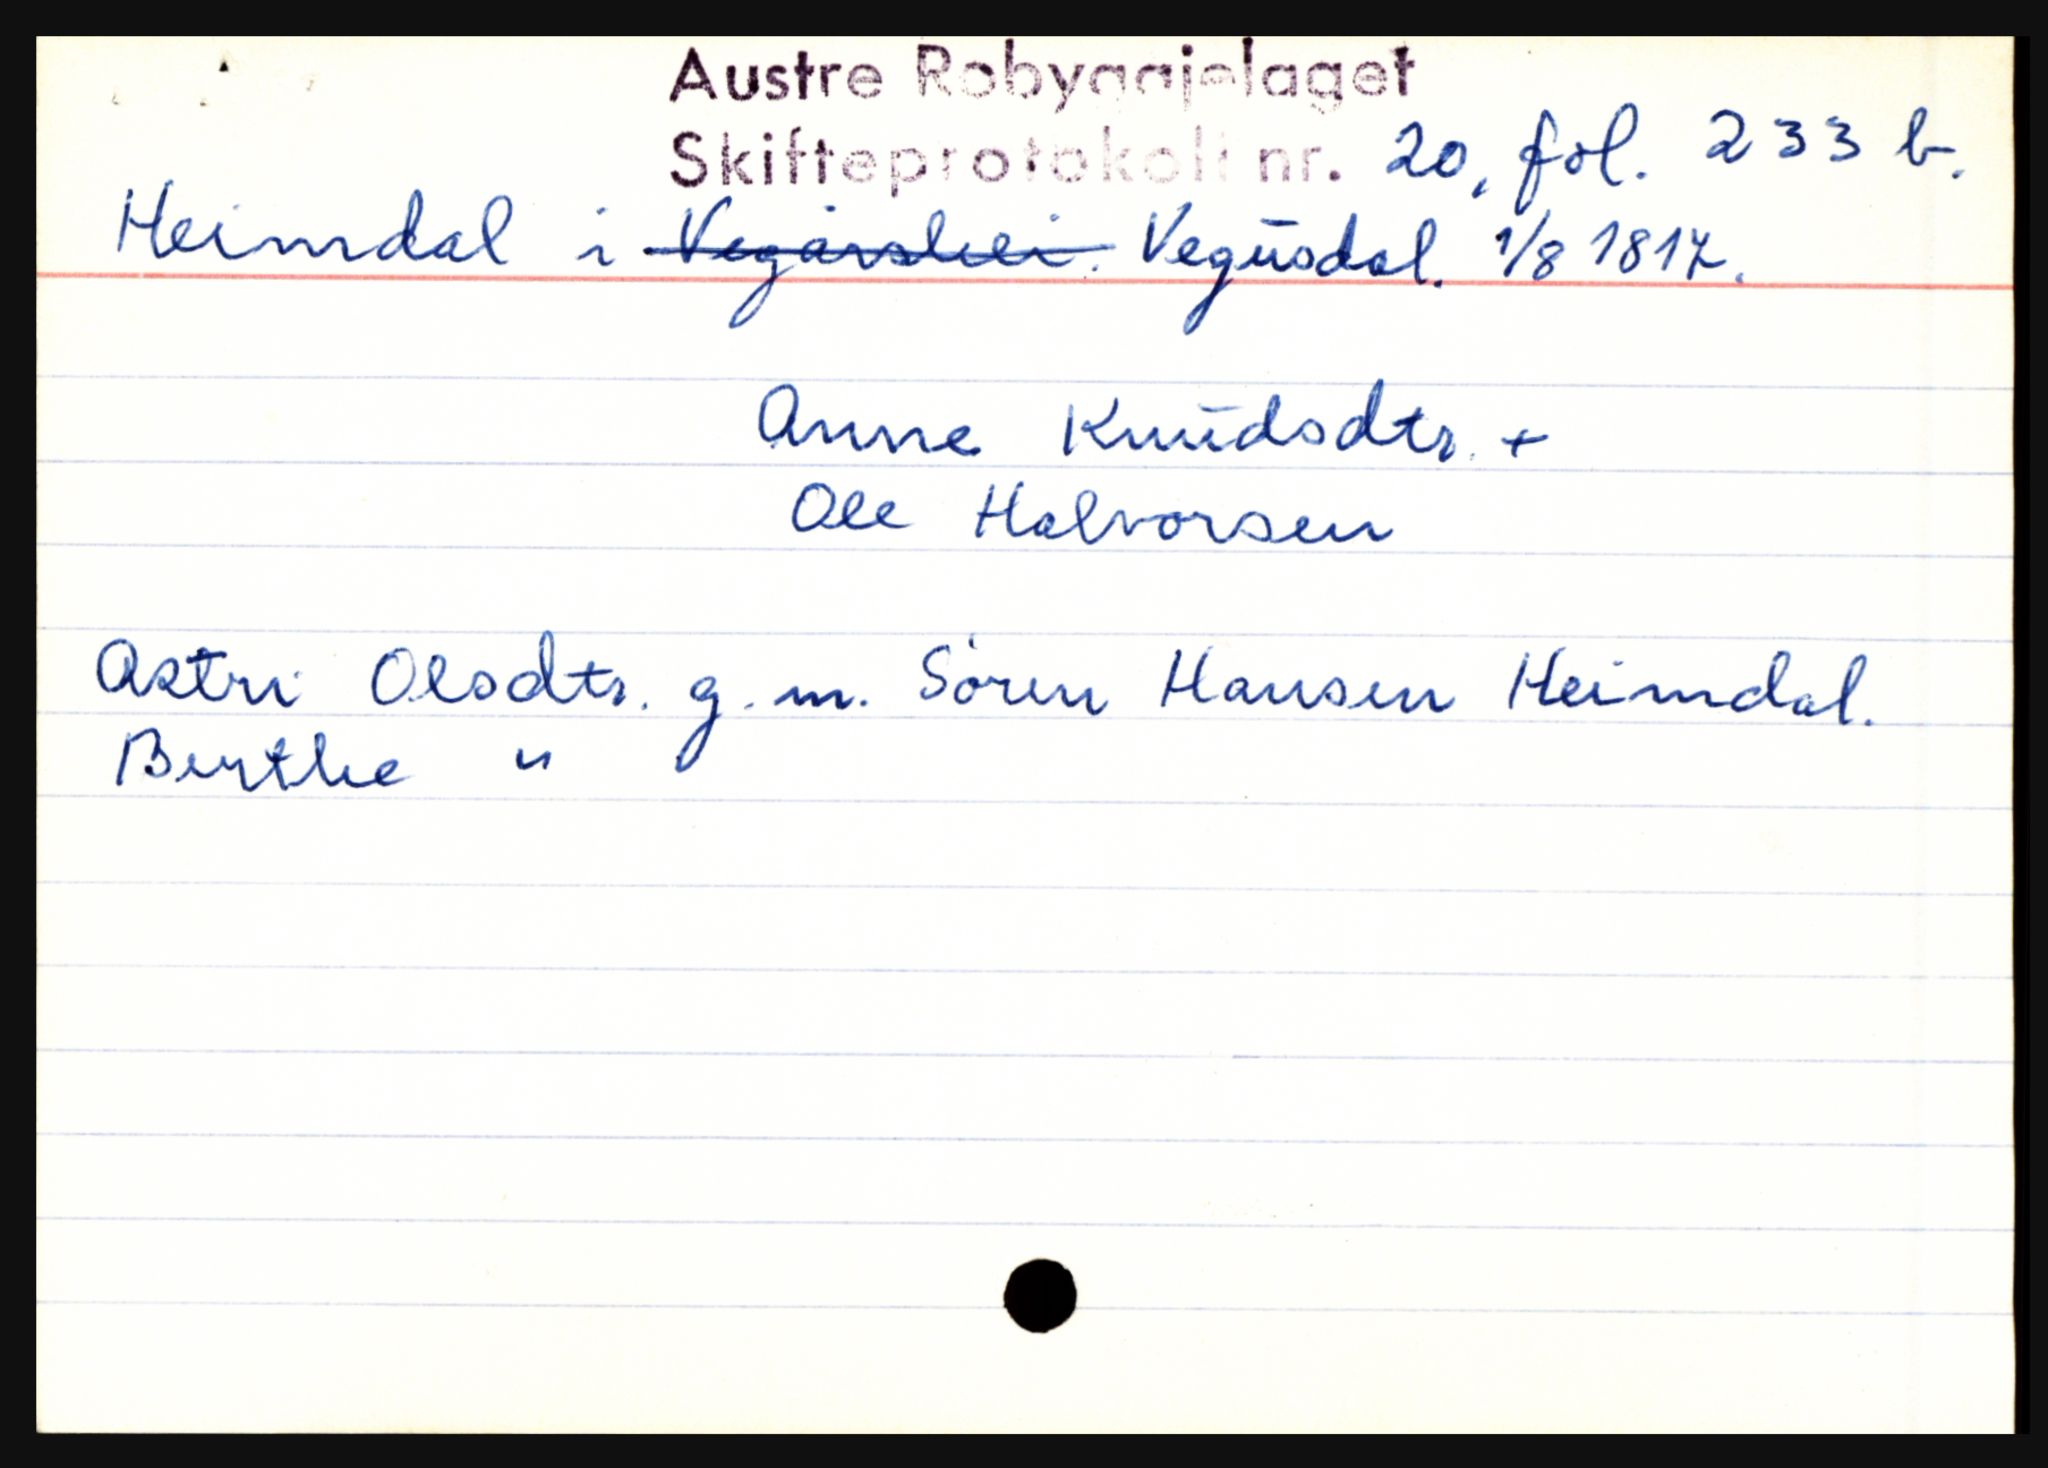 Austre Robyggjelaget
Skifteprotokoll nr. 20, fol. 233 b.
Heimdal i Vegårshei. Vegusdal. 1/8 1817.
Anne Knudsdtr. +
Ole Halvorsen
Astri Olsdtr. g. m. Sören Hansen Heimdal.
Berthe "